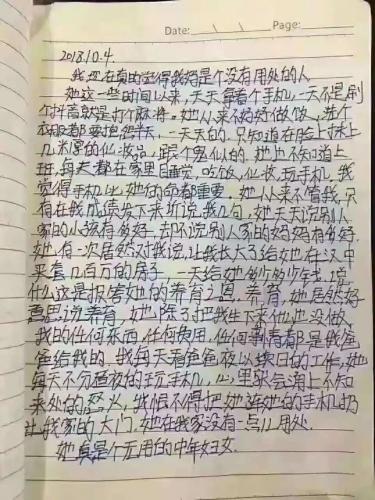 Date: Page:
2018.10.4.
我现在真的觉得我妈是个没有用处的人
她这一些时间以来,天天拿着个手机,一天不是刷
个抖音就是打麻将。她从来不好好做饭,洗个
衣服都要抱怨半天,一天天的,只知道在脸上抹上
几米厚的化妆品,跟个鬼似的。她也不知道上
班,每天都在家里睡觉,吃饭,化妆,玩手机,我
觉得手机比她的命都重要。她从来不管我,只
有在我成绩发下来时说我几句,她天天说别人
家的小孩有多好,却不说别人家的妈妈有多好。
她有一次居然对我说,让我长大了给她在汉中
买套几百万的房子,一天给她多少多少钱,说
什么这是报答她的养育之恩,养育,她居然好
意思说养育,她除了把我生下来什么也没做,
我的任何东西,任何费用,任何都是我爸
爸给我的,我每天看爸爸夜以继日的工作,她
每天不分昼夜的玩手机,心里就会涌上不知
来处的怒火,我恨不得把她连她的手机扔
出我家的大门,她在我家没有一点儿用处。
她真是个无用的中年妇女。